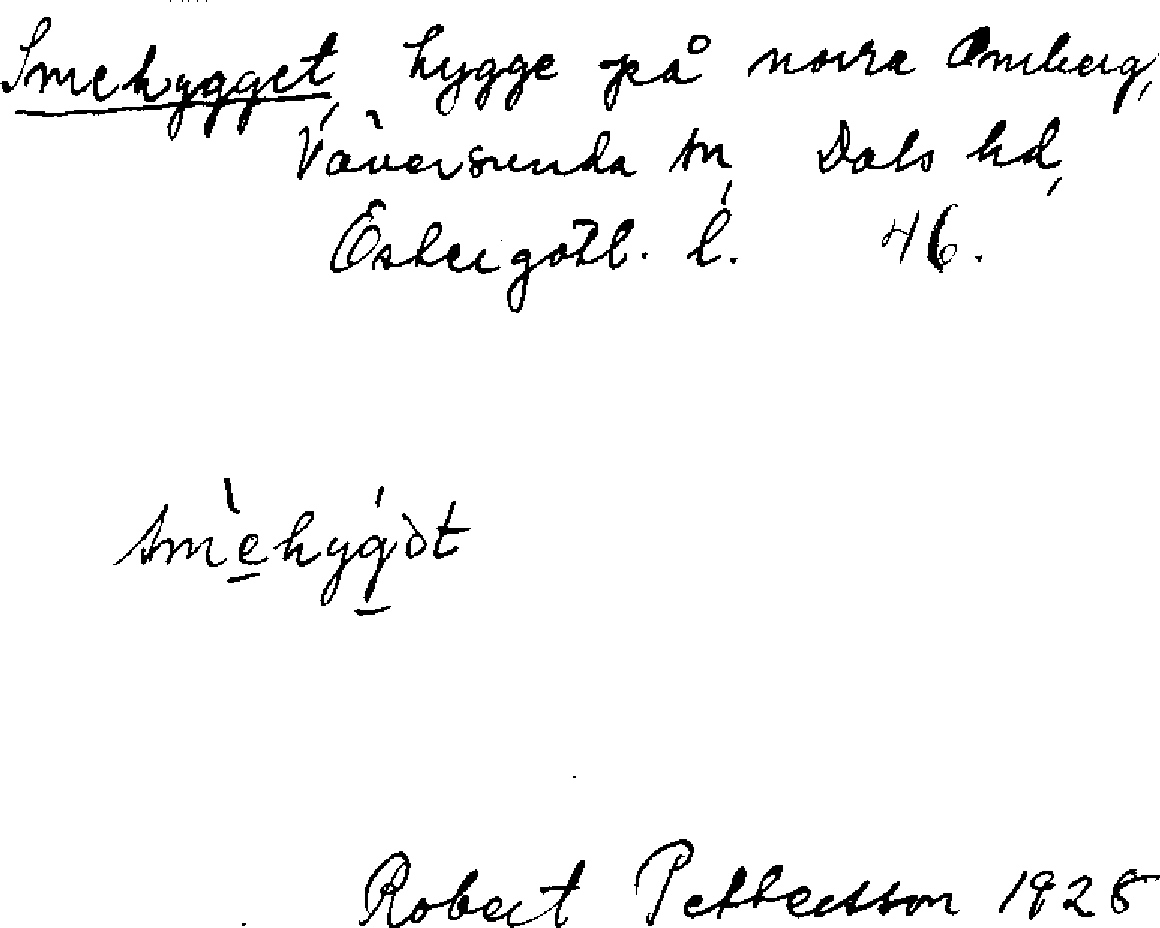 Smehygget, hygge på norra Omberg,
Väversunda sn, Dals hd,
Östergötl. l. 46.
smèhýgət
Robert Pettersson 1928